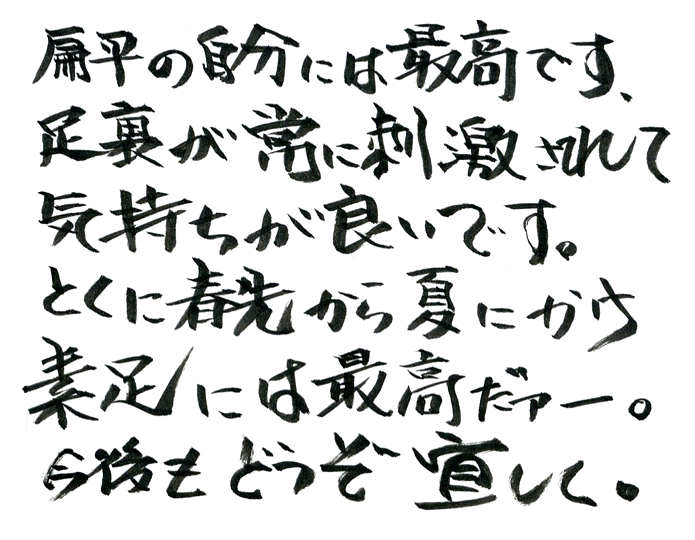 扁平の自分には最高です、
足裏が常に刺激されて
気持ちが良いです。
とくに春先から夏にかけ
素足には最高だァー。
今後もどうぞ宜しく。